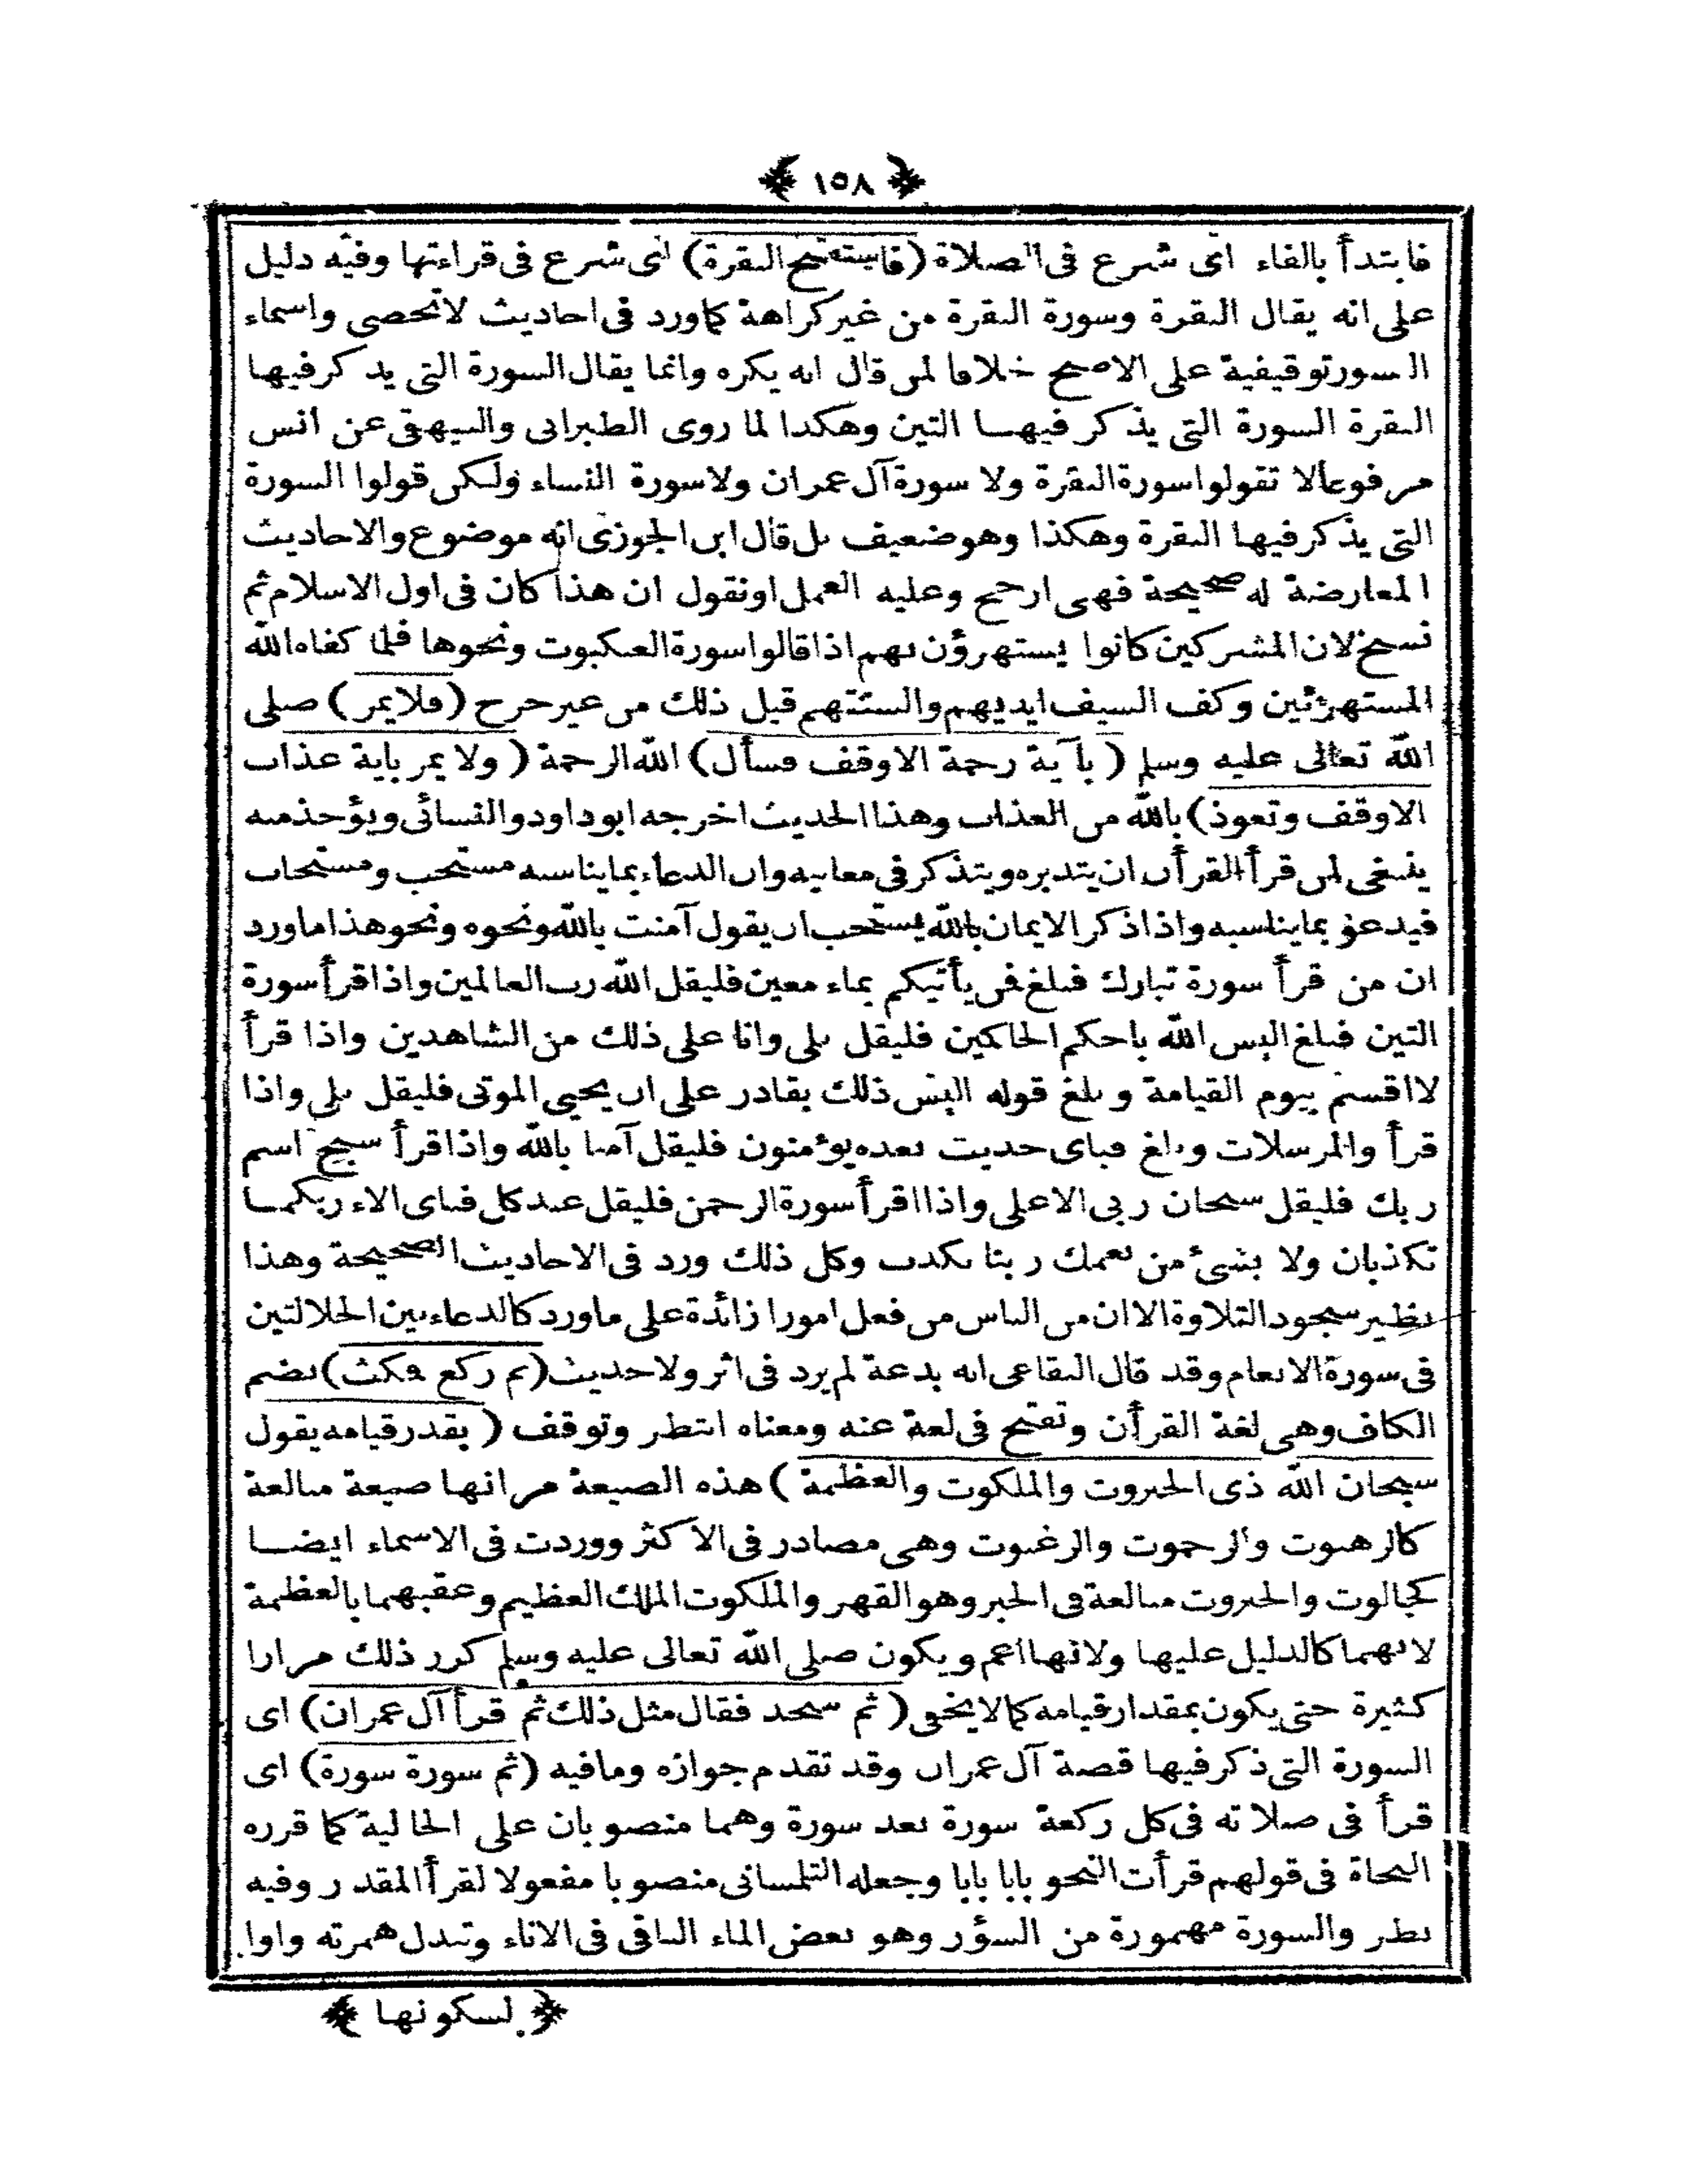 ﴿ ١٥٨ ﴾
فابتدأ بالفاء اى شرع فى الصلاة (فاستفتح البقرة) اى شرع فى قراءتها وفيه دليل
على انه يقال البقرة وسورة البقرة من غير كراهة كما ورد فى احاديث لاتحصى واسماء
السور توقيفية على الاصح خلافا لمن قال انه يكره وانما يقال السورة التى يذكر فيها
البقرة السورة التى يذكر فيها التين وهكذا لما روى الطبرانى والبيهقى عن انس
مرفوعا لا تقولوا سورة البقرة ولا سورة آل عمران ولا سورة النساء ولكن قولوا السورة
التى يذكر فيها البقرة وهكذا وهو ضعيف بل قال ابن الجوزى انه موضوع والاحاديث
المعارضة له صحيحة فهى ارجح وعليه العمل او نقول ان هذا كان فى اول الاسلام ثم
نسخ لان المشركين كانوا يستهزؤن بهم اذا قالوا سورة العنكبوت ونحوها فلما كفاه الله
المستهزئين وكف السيف ايديهم والسنتهم قيل ذلك من غير حرج (فلا يمر) صلى
الله تعالى عليه وسلم (بآية رحمة الا وقف فسأل) الله الرحمة (ولا يمر باية عذاب
الا وقف وتعوذ) بالله من العذاب وهذا الحديث اخرجه ابو داود والنسائى ويؤخذ منه
ينبغى لمن قرأ القرأن ان يتدبره ويتذكر فى معانيه وان الدعاء بما يناسبه مستحب ومستجاب
فيدعو بما يناسبه واذا ذكر الايمان بالله يستحب ان يقول آمنت بالله ونحوه ونحو هذا ما ورد
ان من قرأ سورة تبارك فبلغ فمن يأتيكم بماء معين فليقل الله رب العالمين واذا قرأ سورة
التين فبلغ اليس الله باحكم الحاكمين فليقل بلى وانا على ذلك من الشاهدين واذا قرأ
لا اقسم بيوم القيامة وبلغ قوله اليس ذلك بقادر على ان يحيى الموتى فليقل بلى واذا
قرأ والمرسلات وبلغ فباى حديث بعده يؤمنون فليقل آمنا بالله واذا قرأ سبح اسم
ربك فليقل سبحان ربى الاعلى واذا اقرأ سورة الرحمن فليقل عند كل فباى الاء ربكما
تكذبان ولا بشئ من نعمك ربنا نكذب وكل ذلك ورد فى الاحاديث الصحيحة وهذا
نظير سجود التلاوة الا ان من الناس من فعل امورا زائدة على ما ورد كالدعاء بين الجلالتين
فى سورة الانعام وقد قال البقاعى انه بدعة لم يرد فى اثر ولا حديث (ثم ركع فمكث) بضم
الكاف وهى لغة القرأن وتفتح فى لغة عنه ومعناه انتظر وتوقف (بقدر قيامه يقول
سبحان الله ذى الجبروت والملكوت والعظمة) هذه الصيغة مر انها صيغة مبالغة
كالرهبوت والرحموت والرغبوت وهى مصادر فى الاكثر ووردت فى الاسماء ايضا
كجالوت والجبروت مبالغة فى الجبر وهو القهر والملكوت الملك العظيم وعقبهما بالعظمة
لانهما كالدليل عليها ولانها اعم ويكون صلى الله تعالى عليه وسلم كرر ذلك مرارا
كثيرة حتى يكون بمقدار قيامه كما لا يخفى (ثم سجد فقال مثل ذلك ثم قرأ آل عمران) اى
السورة التى ذكر فيها قصة آل عمران وقد تقدم جوازه وما فيه (ثم سورة سورة) اى
قرأ فى صلاته فى كل ركعة سورة بعد سورة وهما منصوبان على الحالية كما قرره
النحاة فى قولهم قرأت النحو بابا بابا وجعله التلمسانى منصوبا مفعولا لقرأ المقدر وفيه
نظر والسورة مهموزة من السؤر وهو بعض الماء الباقى فى الاناء وتبدل همزته واوا
﴿ لسكونها ﴾